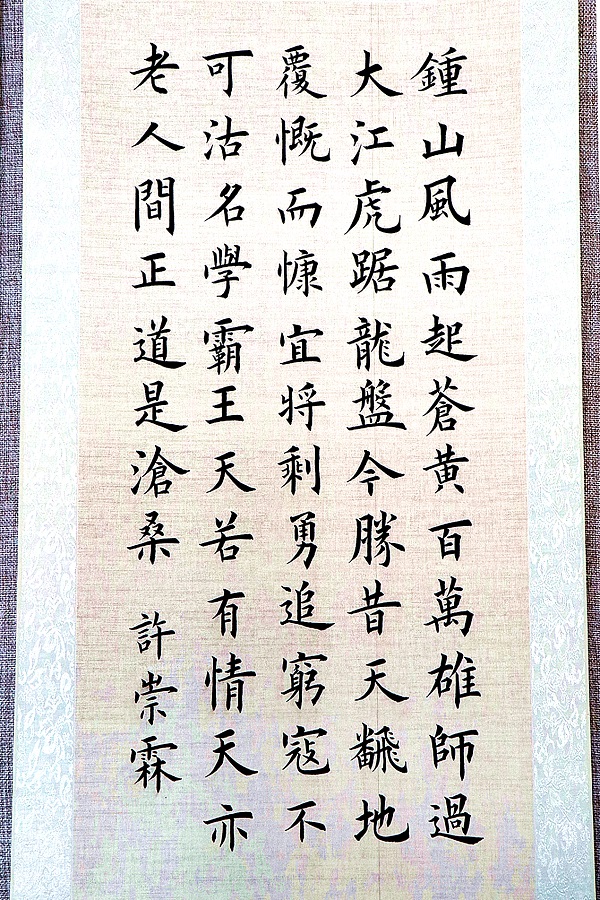 鍾山風雨起蒼黃百萬雄師過
大江虎踞龍盤今勝昔天飜地
覆慨而慷宜将剩勇追窮寇不
可沽名學霸王天若有情天亦
老人間正道是滄桑 許崇霖